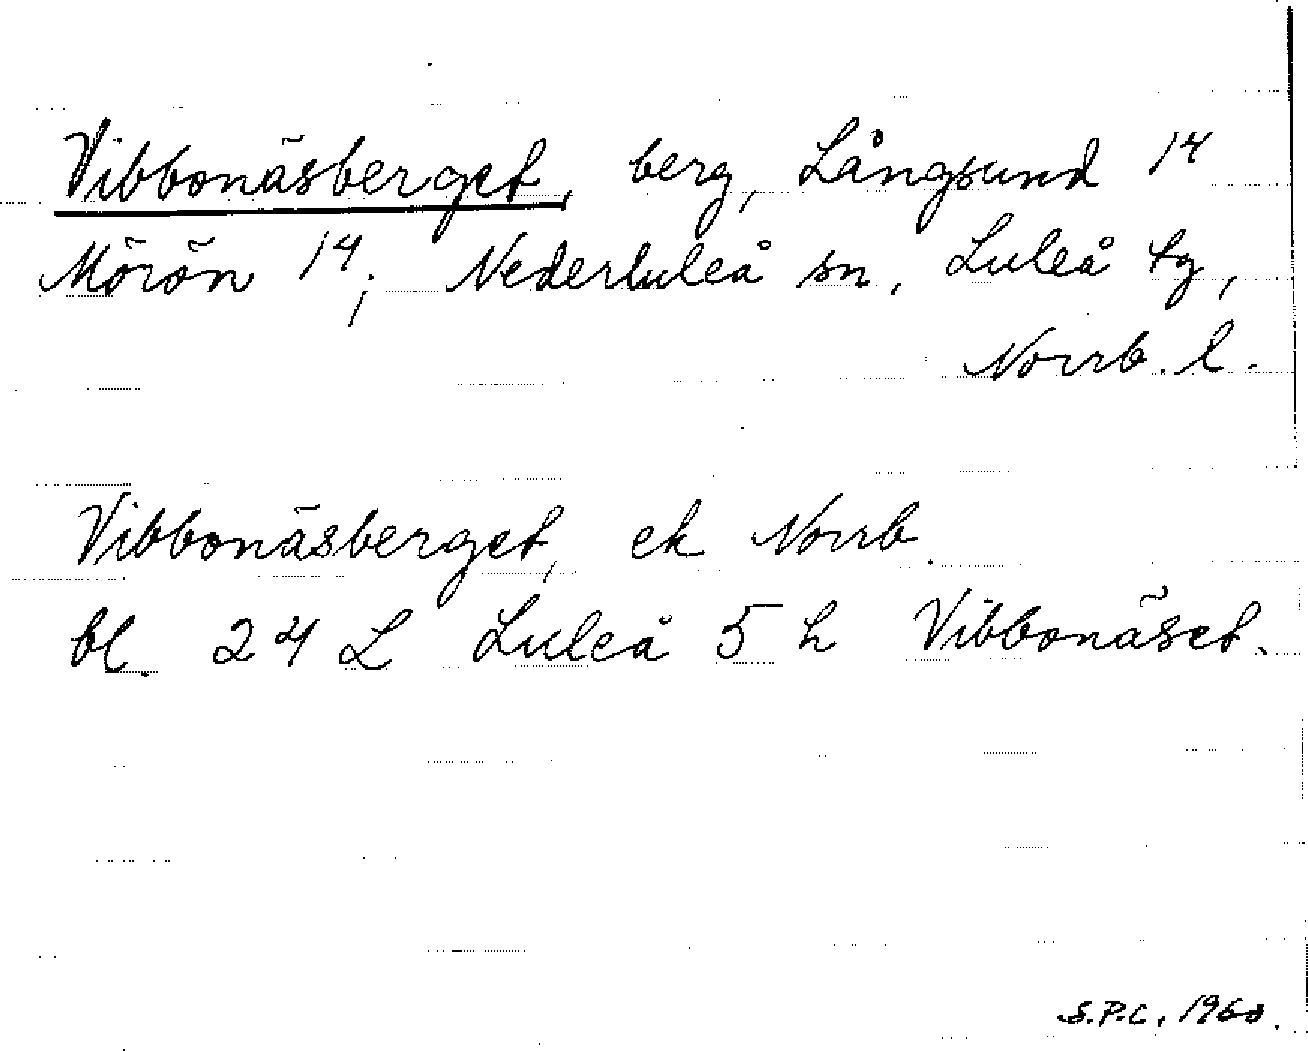 Vibbonäsberget, berg, Långsund 14
Mörön 14; Nederluleå sn, Luleå tg,
Norrb. l.
Vibbonäsberget, ek Norrb.
bl. 24 L Luleå 5 h Vibbonäset.
S.P.C. 1960.